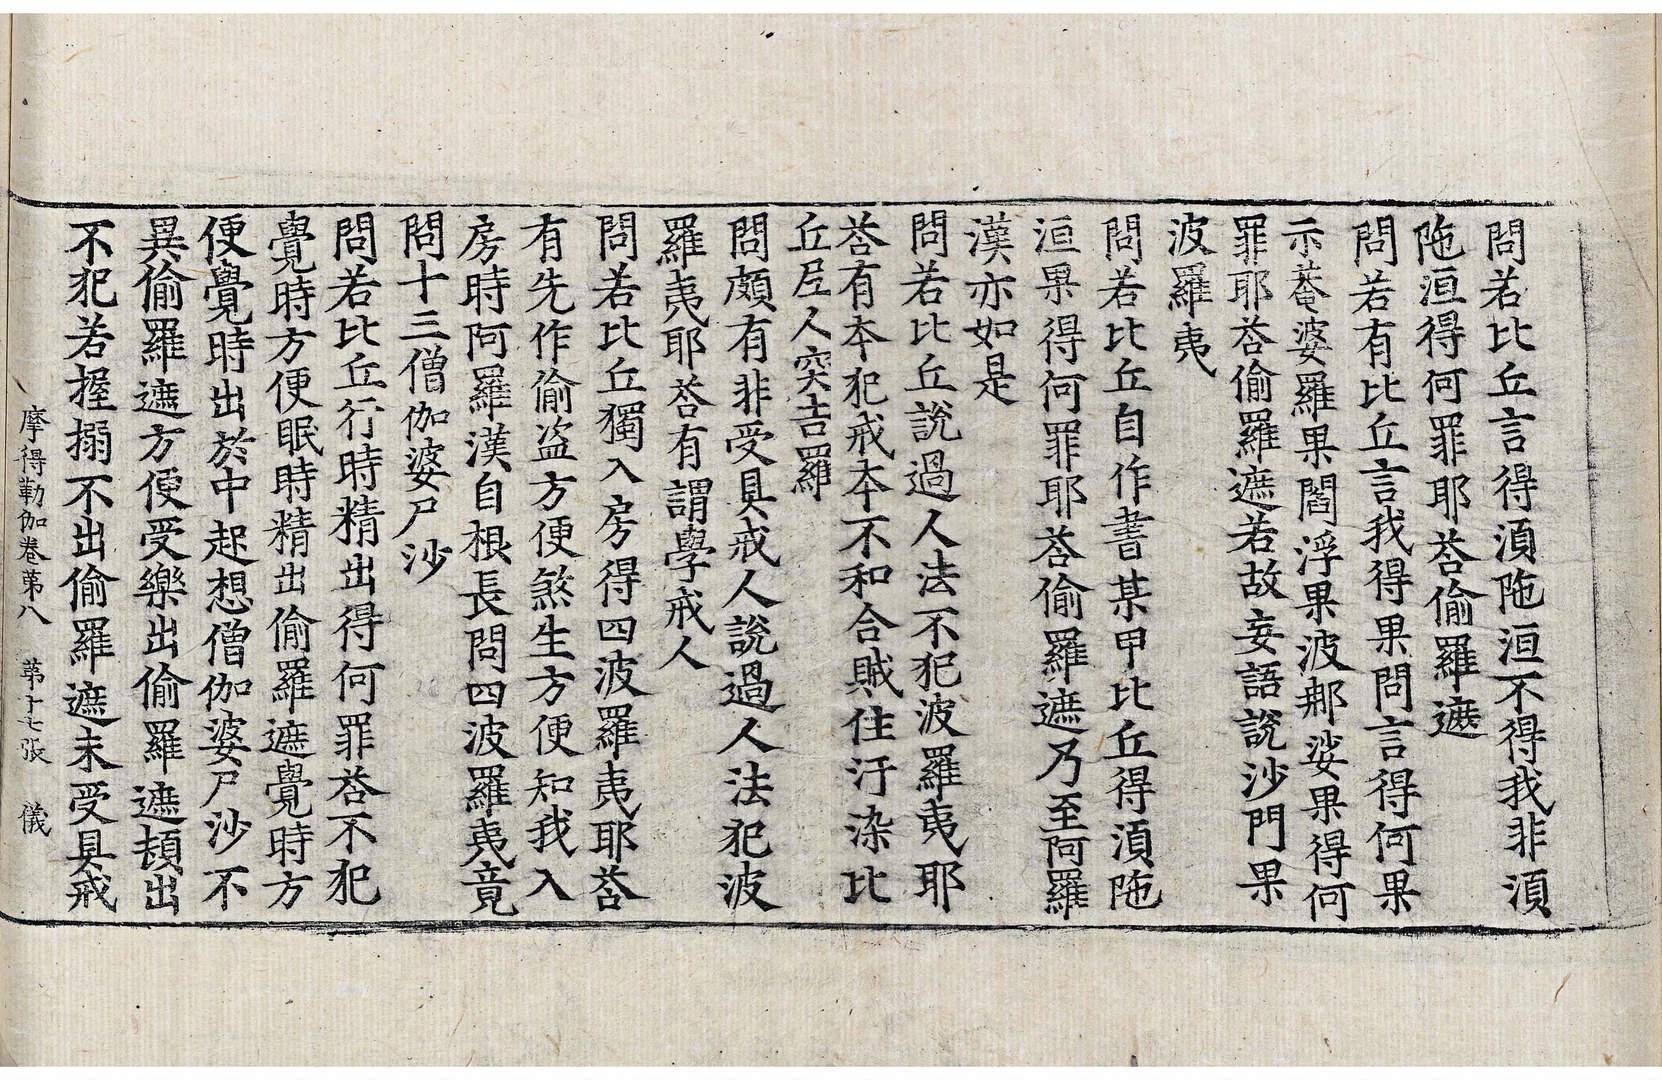 問若比丘言得湏陁洹不得我非湏
陁洹得何罪耶荅偷羅遮
問若有比丘言我得果問言得何果
示菴婆羅果閻浮果波那娑果得何
罪耶荅偷羅遮若故妄語說沙門果
波羅夷
問若比丘自作書某甲比丘得湏陁
洹果得何罪耶荅偷羅遮乃至阿羅
漢亦如是
問若比丘說過人法不犯波羅夷耶
荅有本犯戒本不和合賊住汙染比
丘尼人突吉羅
問頗有非受具戒人說過人法犯波
羅夷耶荅有謂學戒人
問若比丘獨入房得四波羅夷耶荅
有先作偷盗方便煞生方便知我入
房時阿羅漢自根長問四波羅夷竟
問十三僧伽婆尸沙
問若比丘行時精出得何罪荅不犯
覺時方便眠時精出偷羅遮覺時方
便覺時出於中起想僧伽婆尸沙不
異偷羅遮方便受樂出偷羅遮頻出
不犯若握搦不出偷羅遮未受具戒
摩得勒伽卷第八　第十七張　儀